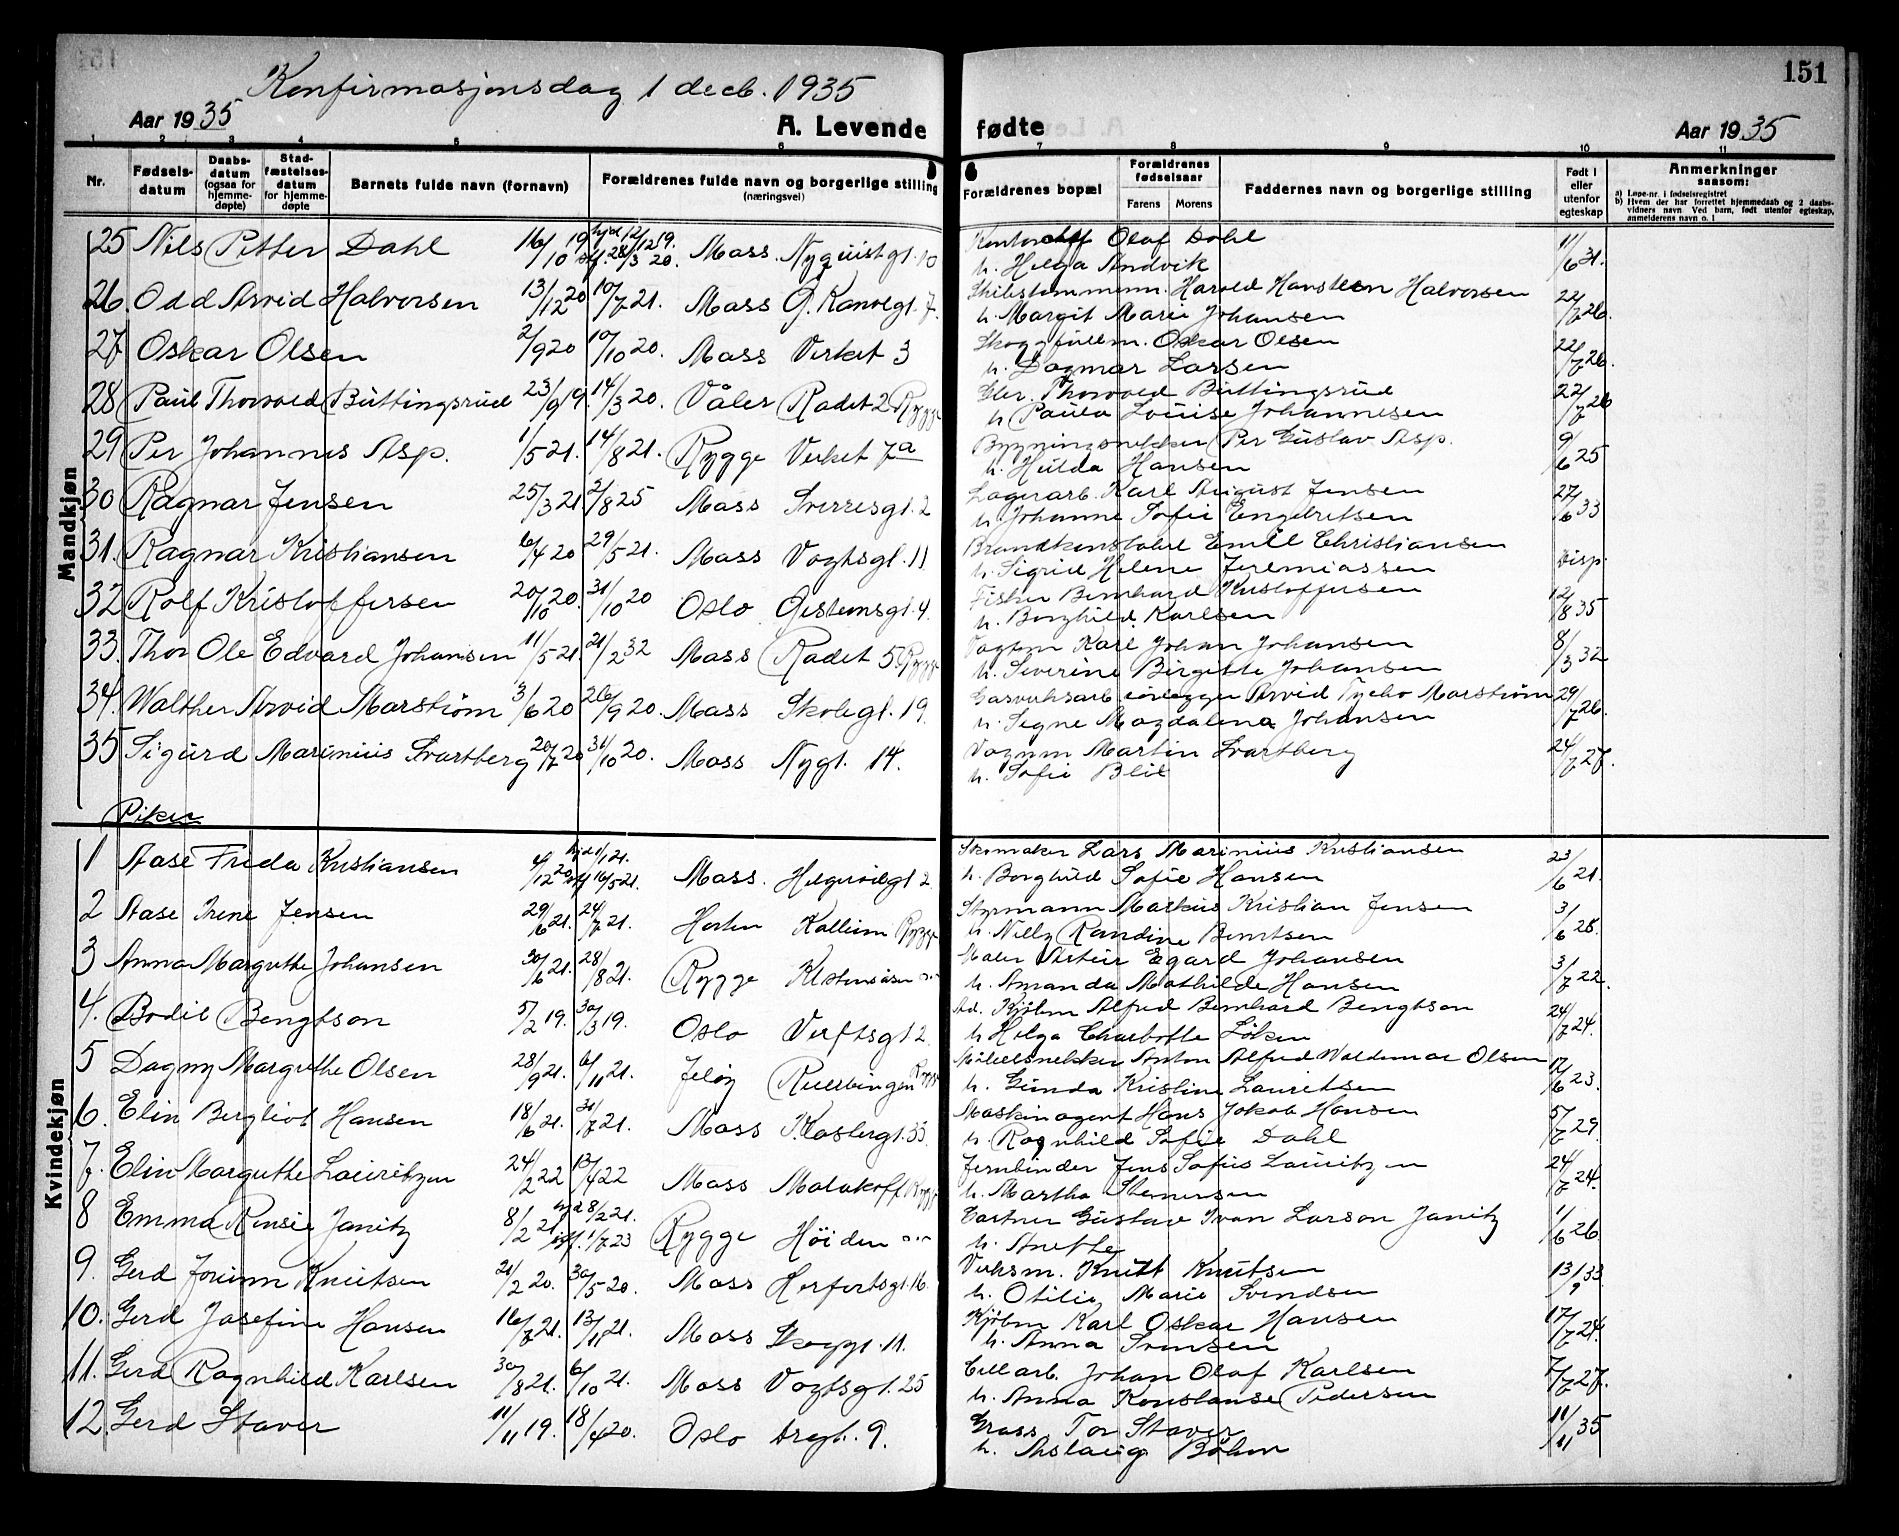 Konfirmasjonsdag 1 decb. 1935
151
Aar 1935
A. Levende
fødte
Aar 1935
1 2 3 4 5 6 7 8 9 10 11
Nr.
Fødsels-datum
Daabs-datum (ogsaa for hjemme-døpte)
Stad-fæstelses-datum for hjemme-døpte
Barnets fulde navn (fornavn)
Forældrenes fulde navn og borgerlige stilling (næringsvei)
Forældrenes bopæl
Forældrenes fødselsaar
Farens Morens
Faddernes navn og borgerlige stilling
Født i eller utenfor egteskap
Anmerkninger saasom:
a) Løpe-nr. i fødselsregistret
b) Hvem der har forrettet hjemmedaab og 2 daabs-vidners navn. Ved barn, født utenfor egteskap, anmelderens navn o. l.
Mandkjøn
25 Nils Petter Dahl 16/10 19 hjd 12/12 19. stf. 28/3 20. Moss. Nyquistgt. 10 Kontorchef Olaf Dahl 11/6 31.
h. Helga Andvik
26. Odd Arvid Halvorsen 13/12 20 10/7 21. Moss G. Kanalgt. 7. Skibstømmerm. Harald Hansteen Halvorsen 22/7 26.
h. Margit Marie Johansen
27 Oskar Olsen 2/9 20 10/10 20. Moss Verket 3 Oskar Olsen 22/7 26.
h. Dagmar Larsen
28 Paul Thorvald Büttingsrud 23/9 19. 14/3 20. Våler Radet 2 Rygge Thorvald Büttingsrud 22/7 26
h. Paula Louise Johannesen
29 Per Johannes Asp. 1/5 21. 14/8 21. Rygge Verket 7a Bygningsnekker Per Gustav Asp. 9/6 25
h. Hulda Hansen
30 Ragnar Jensen 25/3 21 2/8 25 Moss Sverresgt. 2 Lagerarb. Karl August Jensen 27/6 33
h. Johanne Sofie Engebretsen
31. Ragnar Kristiansen 6/4 20 29/5 21. Moss Vogtsgt. 11 Brandkonstabel Emil Christiansen disp.
h. Sigrid Helene Jeremiassen
32 Rolf Kristoffersen 20/10 20. 31/10 20 Oslo Gestemsgt. 4. Fisker Bernhard Kristoffersen 12/8 35
h. Borghild Karlsen
33. Thor Ole Edvard Johansen 11/5 21. 21/2 32 Moss Radet 5 Rygge Karl Johan Johansen 8/3 32
h. Severine Birgitte Johansen
34. Walther Arvid Marstrøm 3/6 20 26/9 20. Moss Skolegt. 19. Gasverksarb. Arvid Tycho Marstrøm 29/7 26.
h. Signe Magdalena Johansen
35 Sigurd Marinius Svartberg 20/7 20 31/10 20. Moss Nygt. 14. Vognm Martin Svartberg 24/7 27.
h. Sofie Blix
Piker
Kvindekjøn
1 Aase Frida Kristiansen 4/12 20 hjd 1/1 21. stf 16/5 21. Moss. Helgerødgt 2 Skomaker Lars Marinius Kristiansen 23/6 21.
h. Borghild Sofie Hansen
2 Aase Irene Jensen 29/6 21. 24/7 21. Horten Kallum Rygge Styrmann Markus Kristian Jensen 3/6 28.
h. Nelly Randine Berntsen
3 Anna Margrethe Johansen 30/6 21. 28/8 21. Rygge Maler Artur Egard Johansen 3/7 22.
h. Amanda Mathilde Hansen
4. Bodil Bengtson 5/2 19. 30/3 19. Oslo Verftsgt 2. Ad. Kjøbm Alfred Bernhard Bengtson 24/7 24.
h. Helga Charlotte Løken
5 Dagny Margrethe Olsen 28/9 21. 6/11 21. Jeløy Rygge Møbelsnekker Anton Alfred Waldemar Olsen 17/6 23.
h. Gunda Kristine Lauritsen
6. Elin Bergliot Hansen 18/6 21. 31/7 21. Moss Klostergt. 33. Maskinagent Hans Jakob Hansen 5/7 29.
h. Ragnhild Sofie Dahl
7. Elin Margrethe Lauritzen 24/2 22 17/4 22 Moss Malakoff Rygge Jernbinder Jens Sofus Lauritzen 24/7 24.
h. Martha Stenersen
8 Emma Rensie Janitz 8/2 21 hjd 8/2 21. stf. 1/7 23 Rygge Høiden Gartner Gustav Ivan Larson Janitz 1/6 26
h. Anette
9. Gerd Jorunn Knutsen 21/2 20. 30/5 20. Moss Herfertsgt. 16. Verksm. Knut Knutsen 13/9 33
h. Otilie Marie Svendsen
10. Gerd Josefine Hansen 16/7 21. 13/11 21. Moss Skoggt. 11. Kjøbm Karl Oskar Hansen 17/7 24.
h. Anna Svensen
11. Gerd Ragnhild Karlsen 30/8 21. 6/10 21. Moss Vogtsgt. 25 Cell arb. Johan Olaf Karlsen 7/7 27.
h. Anna Konstanse Pedersen
12. Gerd Staver 11/11 19. 18/4 20. Oslo 9. Gross Tor Staver 11/11 35
h. Aslaug Bøhm